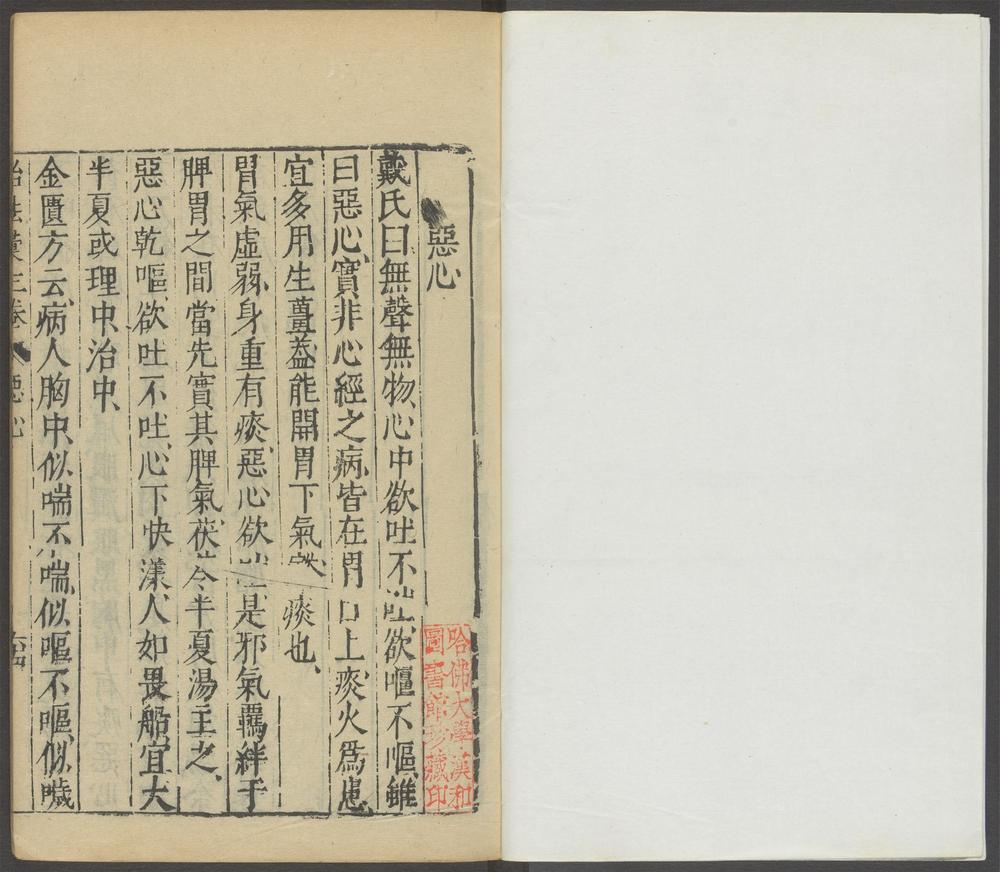 惡心
戴氏曰無聲無物心中欲吐不吐欲嘔不嘔雖
曰惡心實非心經之病皆在胃口上痰火爲患
宜多用生薑葢能開胃下氣 痰也
胃氣虛弱身重有痰惡心欲吐是邪氣羈絆于
脾胃之間當先實其脾氣茯苓半夏湯主之
惡心乾嘔欲吐不吐心下快漾人如畏船宜大
半夏或理中治中
金匱方云病人胸中似喘不喘似嘔不嘔似噦
治法彙三卷 惡心
哈佛大學漢和
圖書館珍藏印